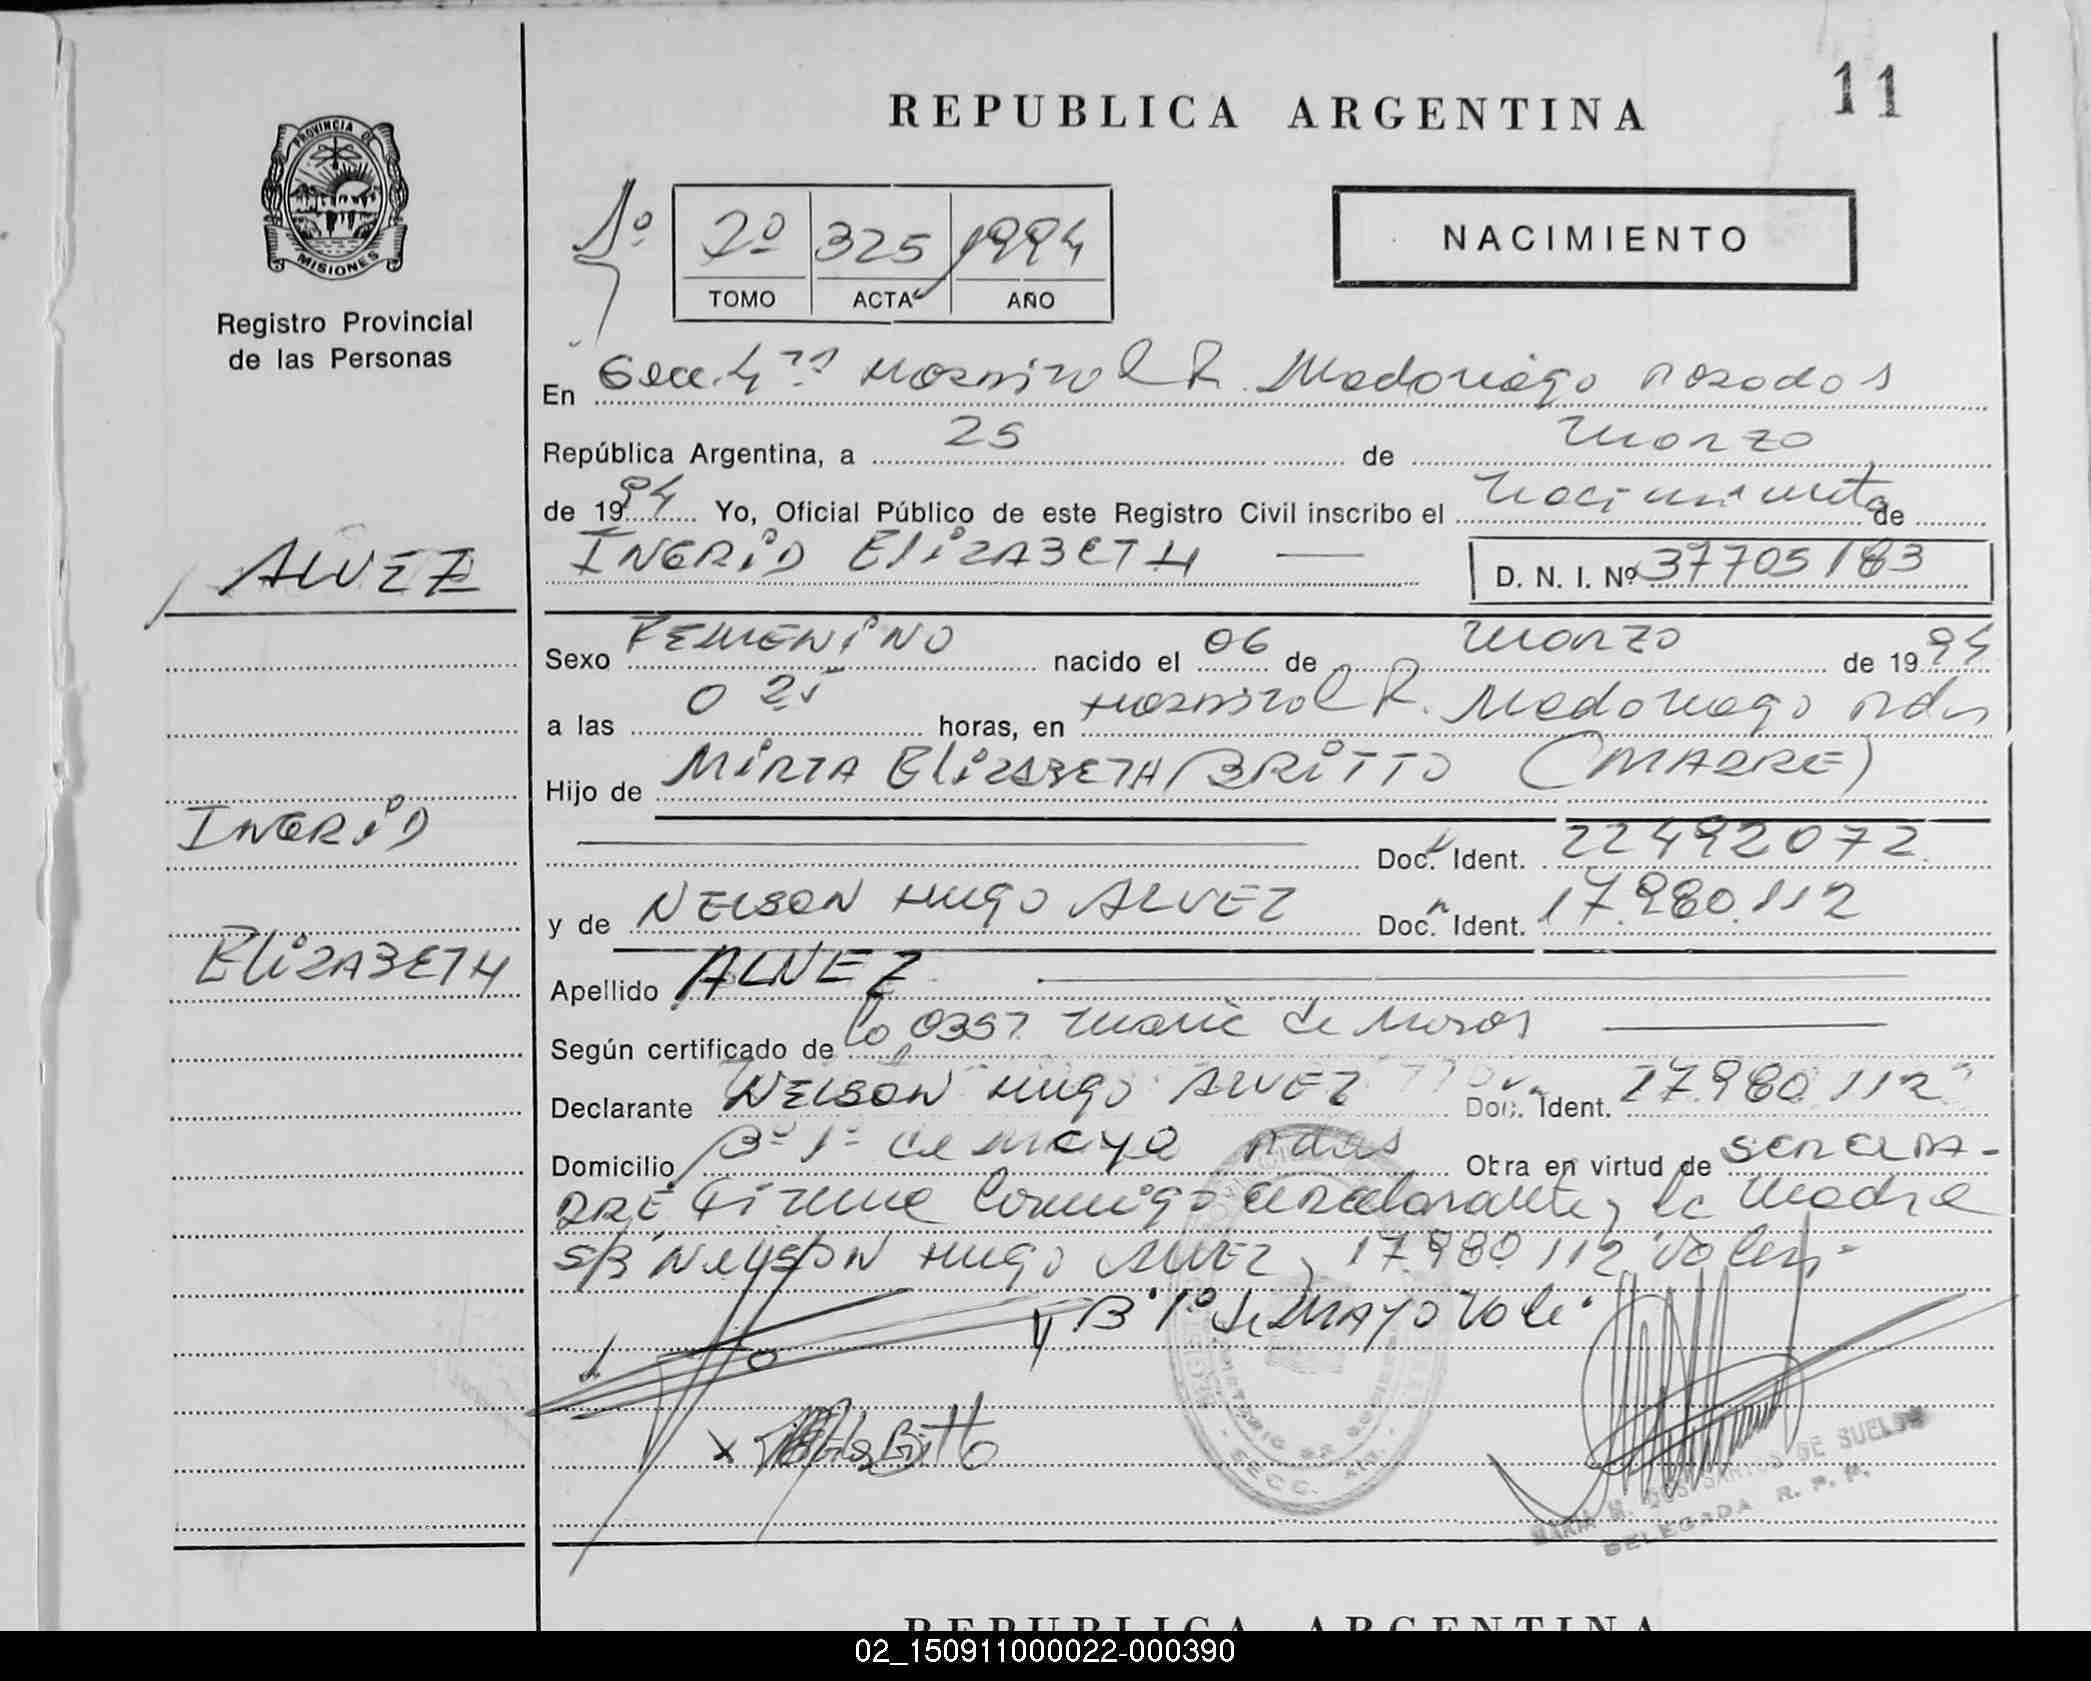 11
REPUBLICA ARGENTINA
PROVINCIA DE
MISIONES
Registro Provincial
de las Personas
1º
2º 325 1994
TOMO ACTA AÑO
NACIMIENTO
En Secc. 4ta Hospital R. Madariaga Posadas
República Argentina, a 25 de Marzo
de 1994 Yo, Oficial Público de este Registro Civil inscribo el nacimiento de
ALVEZ
INGRID ELIZABETH D. N. I. Nº 37705183
Sexo FEMENINO nacido el 06 de Marzo de 1994
a las 0 25 horas, en Hospital R. Madariaga Pdas
Hijo de MIRTA ELIZABETH BRITTO (MADRE)
INGRID
Doc. Ident. 22492072
y de NELSON Hugo ALVEZ Doc. Ident. 17.980.112
ELIZABETH
Apellido ALVEZ
Según certificado de 0357
Declarante NELSON Hugo ALVEZ Doc. Ident. 17.980.112
Domicilio Bº 1º de Mayo Pdas Obra en virtud de SER EL PA-
DRE Firma Conmigo declarante y la Madre
S/B NELSON Hugo ALVEZ, 17.980.112 Vale
y Bº 1º de MAYO Vale
SECC. 4ta.
DOS SANTOS DE SUELDO
DELEGADA R. P. P.
REPUBLICA ARGENTINA
02_150911000022-000390